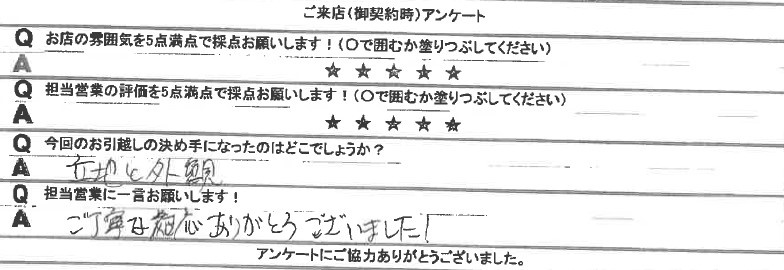 ご来店(御契約時)アンケート
Q お店の雰囲気を5点満点で採点お願いします!(○で囲むか塗りつぶしてください)
A ★ ★ ★ ★ ★
Q 担当営業の評価を5点満点で採点お願いします!(○で囲むか塗りつぶしてください)
A ★ ★ ★ ★ ★
Q 今回のお引越しの決め手になったのはどこでしょうか?
A 立地と外観
Q 担当営業に一言お願いします!
A ご丁寧な対応ありがとうございました!
アンケートにご協力ありがとうございました。